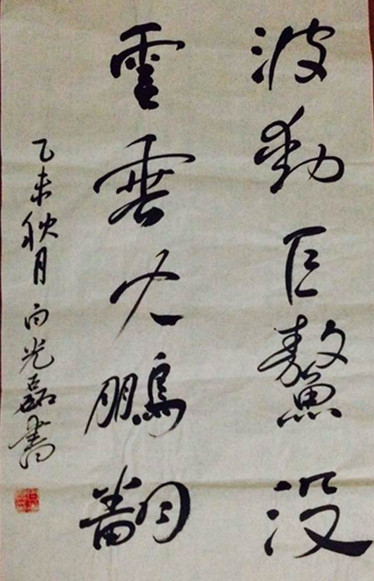 波動巨鰲没
雲垂大鵬翻
乙未秋月白光磊書